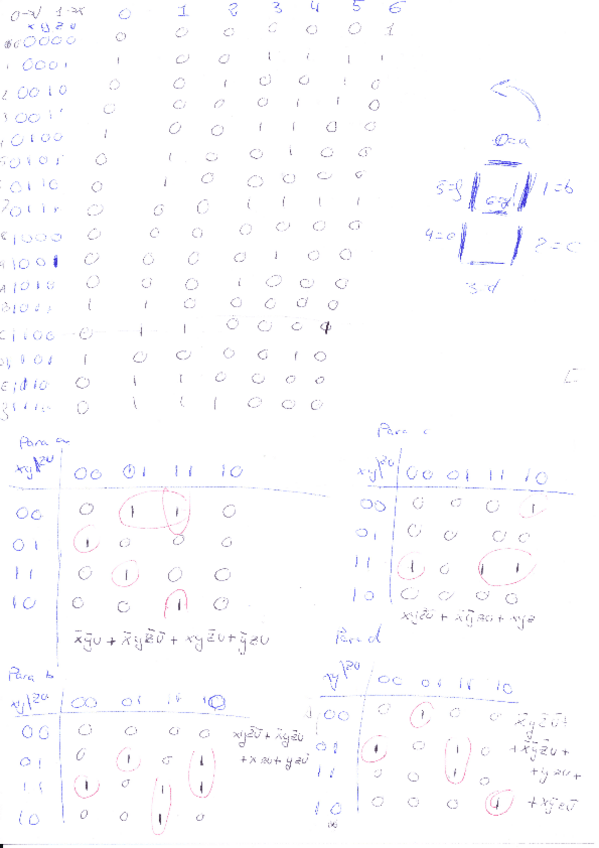 0 1 2 3 4 5 6
x y z u
0000 0 0 0 0 0 0 1
0001 1 0 0 1 1 1 1
0010 0 0 1 0 0 1 0
0 0 0 0 1 1 0
0100 1 0 0 1 1 0 0
0101 0 1 0 0 1 0 0
0110 0 1 0 0 0 0 0
0 0 0 1 1 1 1
1000 0 0 0 0 0 0 0
1001 0 0 0 0 1 0 0
1010 0 0 0 1 0 0 0
1 1 0 0 0 0 0
1100 0 1 1 0 0 0
1 0 0 0 0 1 0
0 1 1 0 0 0 0
0 1 1 1 0 0 0
0=a
5=f 1=b
6=g
4=e 2=c
3=d
Para a
xy\zu 00 01 11 10
00 0 1 1 0
01 1 0 0 0
11 0 1 0 0
10 0 0 1 0
x̄ȳu + x̄yz̄ū + xyz̄u + ȳzu
Para c
xy\zu 00 01 11 10
00 0 0 0 1
01 0 0 0 0
11 1 0 1 1
10 0 0 0 0
xyz̄ū + x̄ȳzū + xyz
Para b
xy\zu 00 01 11 10
00 0 0 0 0
01 0 1 0 1
11 1 0 1 1
10 0 0 1 0
xyz̄ū + x̄yz̄u
+ xzu + yzū
Para d
xy\zu 00 01 11 10
00 0 1 0 0
01 1 0 1 0
11 0 0 1 0
10 0 0 0 1
x̄ȳz̄u
+ x̄yz̄ū +
+ yzu +
+ xȳzū